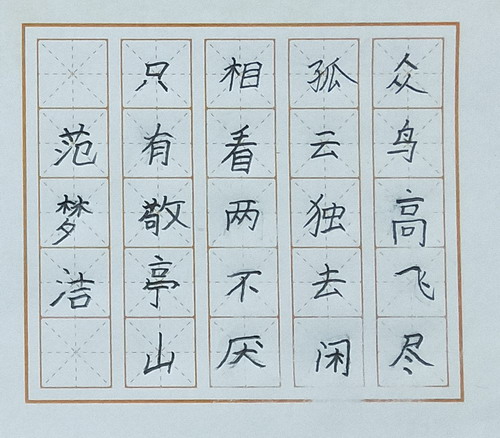 众鸟高飞尽
孤云独去闲
相看两不厌
只有敬亭山
范梦洁